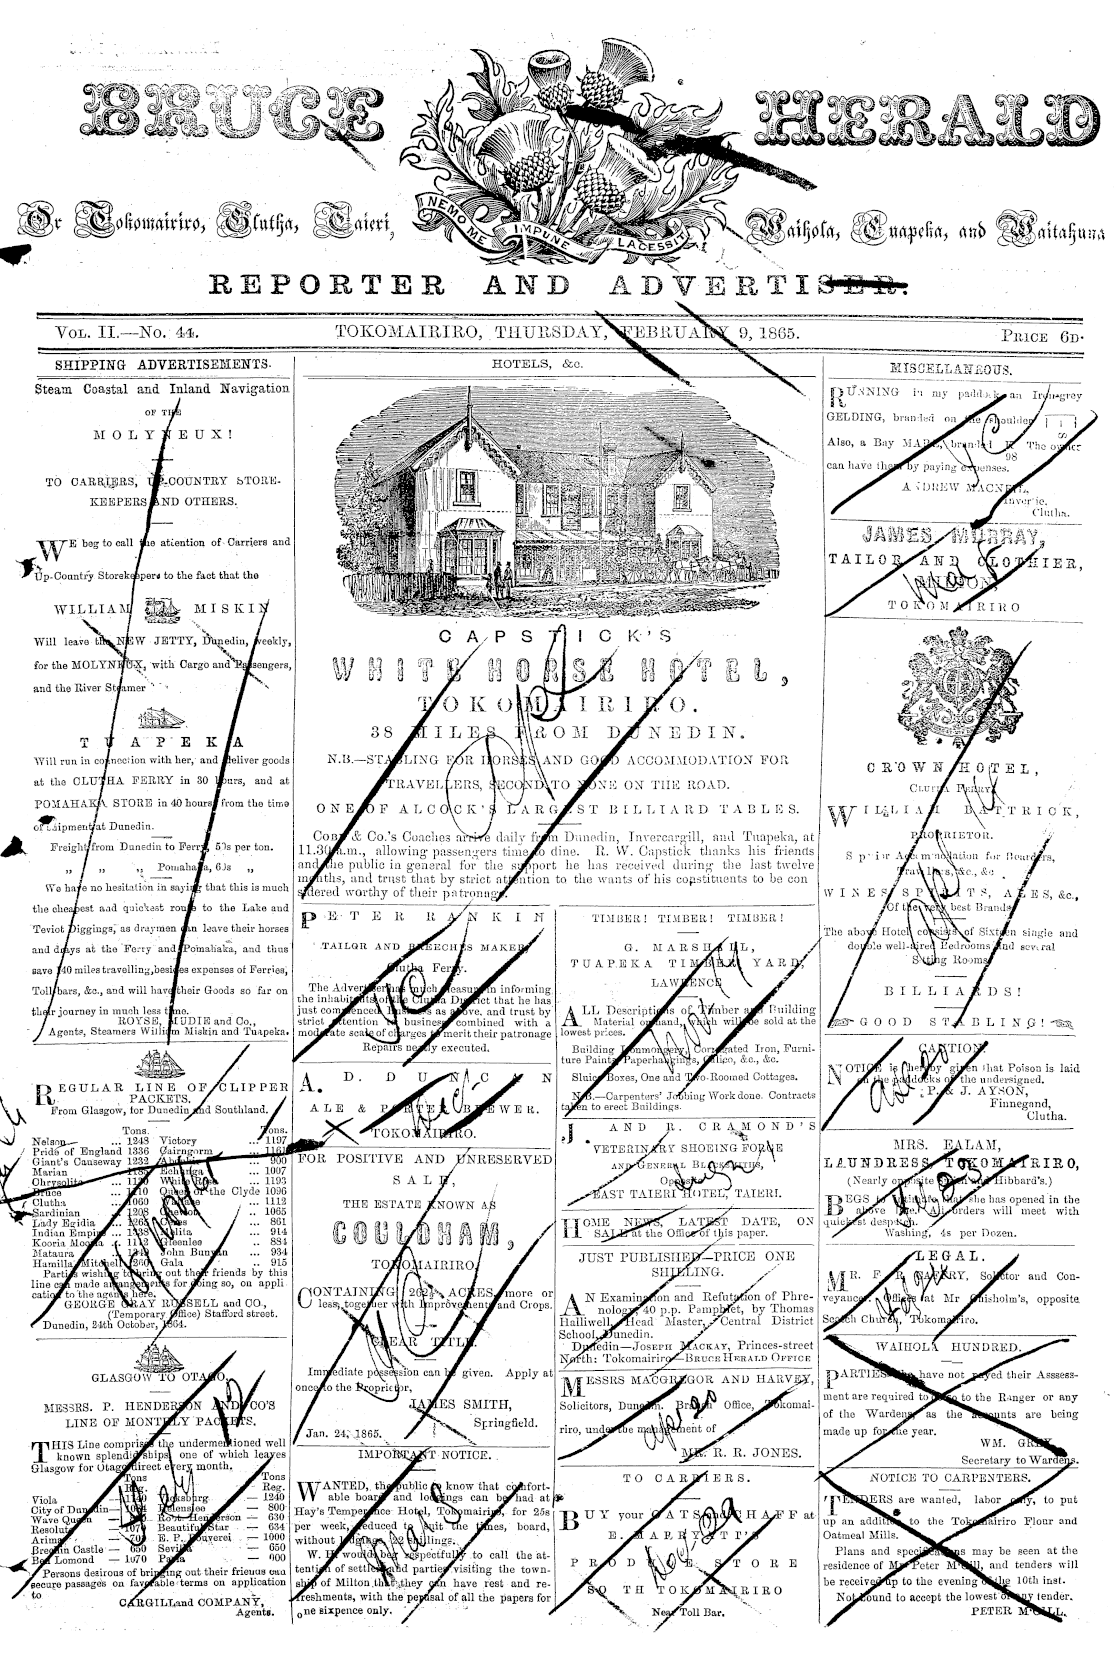 BRUCE HERALD
NEMO ME IMPUNE LACESSIT
Or Tokomairiro, Clutha, Taieri, Waihola, Tuapeka, and Waitahuna
REPORTER AND ADVERTISER.
VOL. II.—No. 44. TOKOMAIRIRO, THURSDAY, FEBRUARY 9, 1865. PRICE 6D.
SHIPPING ADVERTISEMENTS.
Steam Coastal and Inland Navigation
OF THE
MOLYNEUX!
TO CARRIERS, UP-COUNTRY STORE-
KEEPERS AND OTHERS.
WE beg to call the attention of Carriers and
Up-Country Storekeepers to the fact that the
WILLIAM MISKIN
Will leave the NEW JETTY, Dunedin, weekly,
for the MOLYNEUX, with Cargo and Passengers,
and the River Steamer
TUAPEKA
Will run in connection with her, and deliver goods
at the CLUTHA FERRY in 30 hours, and at
POMAHAKA STORE in 40 hours from the time
of shipment at Dunedin.
Freight from Dunedin to Ferry, 50s per ton.
„ „ „ Pomahaka, 60s „
We have no hesitation in saying that this is much
the cheapest and quickest route to the Lake and
Teviot Diggings, as draymen can leave their horses
and drays at the Ferry and Pomahaka, and thus
save 140 miles travelling, besides expenses of Ferries,
Toll bars, &c., and will have their Goods so far on
their journey in much less time.
ROYSE, MUDIE and Co.,
Agents, Steamers William Miskin and Tuapeka.
REGULAR LINE OF CLIPPER
PACKETS.
From Glasgow, for Dunedin and Southland.
Tons. Tons.
Nelson ... 1248 Victory .. 1197
Pride of England 1336 Cairngorm .. 1161
Giant's Causeway 1232 .. 900
Marian Echunga .. 1007
Chrysolite .. 1193
Bruce Queen of the Clyde 1096
Clutha ... 1060 .. 1112
Sardinian ... 1208 .. 1065
Lady Egidia .. 861
Indian Empire .. 914
Kooria Mooria Glenlee .. 884
Mataura John Bunyan .. 934
Hamilla Mitchell Gala .. 915
Parties wishing to bring out their friends by this
line can made arrangements for doing so, on appli
cation to the agents here.
GEORGE GRAY RUSSELL and CO.,
(Temporary Office) Stafford street.
Dunedin, 24th October, 1864.
GLASGOW TO OTAGO.
MESSRS. P. HENDERSON AND CO'S
LINE OF MONTHLY PACKETS.
THIS Line comprises the undermentioned well
known splendid ships, one of which leaves
Glasgow for Otago direct every month.
Tons Tons
Reg. Reg.
Viola Vicksburg — 1240
City of Dunedin Helenslee — 800
Wave Queen Robt Henderson — 630
Resolute Beautiful Star — 634
Arima E. P. Bouverei — 1000
Brechin Castle Sevilla — 650
Ben Lomond — 1070 — 600
Persons desirous of bringing out their friends can
secure passages on favorable terms on application
to
CARGILL and COMPANY,
Agents.
HOTELS, &c.
CAPSTICK'S
WHITE HORSE HOTEL,
TOKOMAIRIRO.
38 MILES FROM DUNEDIN.
N.B.—STABLING FOR HORSES AND GOOD ACCOMMODATION FOR
TRAVELLERS, SECOND TO NONE ON THE ROAD.
ONE OF ALCOCK'S LARGEST BILLIARD TABLES.
COBB & Co.'s Coaches arrive daily from Dunedin, Invercargill, and Tuapeka, at
11.30 a.m., allowing passengers time to dine. R. W. Capstick thanks his friends
and the public in general for the support he has received during the last twelve
months, and trust that by strict attention to the wants of his constituents to be con
sidered worthy of their patronage.
PETER RANKIN
TAILOR AND BREECHES MAKER,
Clutha Ferry.
The Advertiser has much pleasure in informing
the inhabitants of the Clutha District that he has
just commenced business as above, and trust by
strict attention to business, combined with a
moderate scale of charges to merit their patronage
Repairs neatly executed.
A. D. DUNCAN
ALE & PORTER BREWER.
TOKOMAIRIRO.
FOR POSITIVE AND UNRESERVED
SALE,
THE ESTATE KNOWN AS
COULDHAM,
TOKOMAIRIRO.
CONTAINING 262¼ ACRES, more or
less, together with Improvements and Crops.
CLEAR TITLE.
Immediate possession can be given. Apply at
once to the Proprietor,
JAMES SMITH,
Springfield.
Jan. 24, 1865.
IMPORTANT NOTICE.
WANTED, the public to know that comfort-
able board and lodgings can be had at
Hay's Temperance Hotel, Tokomairiro, for 25s
per week, reduced to suit the times, board,
without lodgings, 22 shillings.
W. H. would beg respectfully to call the at-
tention of settlers and parties visiting the town-
ship of Milton, that they can have rest and re-
freshments, with the perusal of all the papers for
one sixpence only.
TIMBER! TIMBER! TIMBER!
G. MARSHALL,
TUAPEKA TIMBER YARD,
LAWRENCE
ALL Descriptions of Timber and Building
Material on hand, which will be sold at the
lowest prices.
Building Ironmongery, Corrugated Iron, Furni-
ture Paints, Paperhangings, Calico, &c., &c.
Sluice Boxes, One and Two-Roomed Cottages.
N.B.—Carpenters' Jobbing Work done. Contracts
taken to erect Buildings.
J. AND R. CRAMOND'S
VETERINARY SHOEING FORGE
AND GENERAL BLACKSMITHS,
Opposite
EAST TAIERI HOTEL, TAIERI.
HOME NEWS, LATEST DATE, ON
SALE at the Office of this paper.
JUST PUBLISHED—PRICE ONE
SHILLING.
AN Examination and Refutation of Phre-
nology, 40 p.p. Pamphlet, by Thomas
Halliwell, Head Master, Central District
School, Dunedin.
Dunedin—JOSEPH MACKAY, Princes-street
North: Tokomairiro—BRUCE HERALD OFFICE
MESSRS MACGREGOR AND HARVEY,
Solicitors, Dunedin. Branch Office, Tokomai-
riro, under the management of
MR. R. R. JONES.
TO CARRIERS.
BUY your OATS and CHAFF at
E. MARRYATT'S
PRODUCE STORE
SOUTH TOKOMAIRIRO
Near Toll Bar.
MISCELLANEOUS.
RUNNING in my paddock an Iron-grey
GELDING, branded on the shoulder
Also, a Bay MARE, branded The owner
98
can have them by paying expenses.
ANDREW MACNEIL,
Inverie,
Clutha.
JAMES MURRAY,
TAILOR AND CLOTHIER,
MILTON,
TOKOMAIRIRO
CROWN HOTEL,
CLUTHA FERRY.
WILLIAM DATTRICK,
PROPRIETOR.
Superior Accommodation for Boarders,
Travellers, &c., &c
WINES, SPIRITS, ALES, &c.,
Of the very best Brands.
The above Hotel consists of Sixteen single and
double well-aired Bedrooms and several
Sitting Rooms.
BILLIARDS!
GOOD STABLING!
CAUTION.
NOTICE is hereby given that Poison is laid
on the paddocks of the undersigned.
P. & J. AYSON,
Finnegand,
Clutha.
MRS. EALAM,
LAUNDRESS, TOKOMAIRIRO,
(Nearly opposite and Hibbard's.)
BEGS to intimate that she has opened in the
above line. All orders will meet with
quickest despatch.
Washing, 4s per Dozen.
LEGAL.
MR. F. R. Solicitor and Con-
veyancer. Offices at Mr Chisholm's, opposite
Scotch Church, Tokomairiro.
WAIHOLA HUNDRED.
PARTIES who have not payed their Asssess-
ment are required to do so to the Ranger or any
of the Wardens, as the accounts are being
made up for the year.
WM. GREY,
Secretary to Wardens.
NOTICE TO CARPENTERS.
TENDERS are wanted, labor only, to put
up an addition to the Tokomairiro Flour and
Oatmeal Mills.
Plans and specifications may be seen at the
residence of Mr Peter McGill, and tenders will
be received up to the evening of the 10th inst.
Not bound to accept the lowest or any tender.
PETER McGILL.